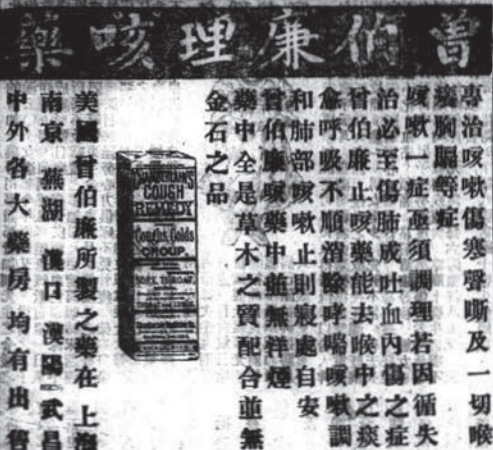 曾伯廉理咳藥
專治咳嗽傷寒聲嘶及一切喉
胸膈等症
咳嗽一症亟須調理若因循失
治必至傷肺成吐血內傷之症
曾伯廉止咳藥能去喉中之痰
呼吸不順消除哮喘咳嗽調
和肺部咳嗽止則寢處自安
曾伯廉咳藥中並無洋煙
藥中全是草木之質配合並無
金石之品
CHAMBERLAIN'S
COUGH
REMEDY
Coughs, Colds
CROUP,
SORE THROAT,
美國曾伯廉所製之藥在 上海
南京 蕪湖 漢口 漢陽 武昌
中外各大藥房均有出售